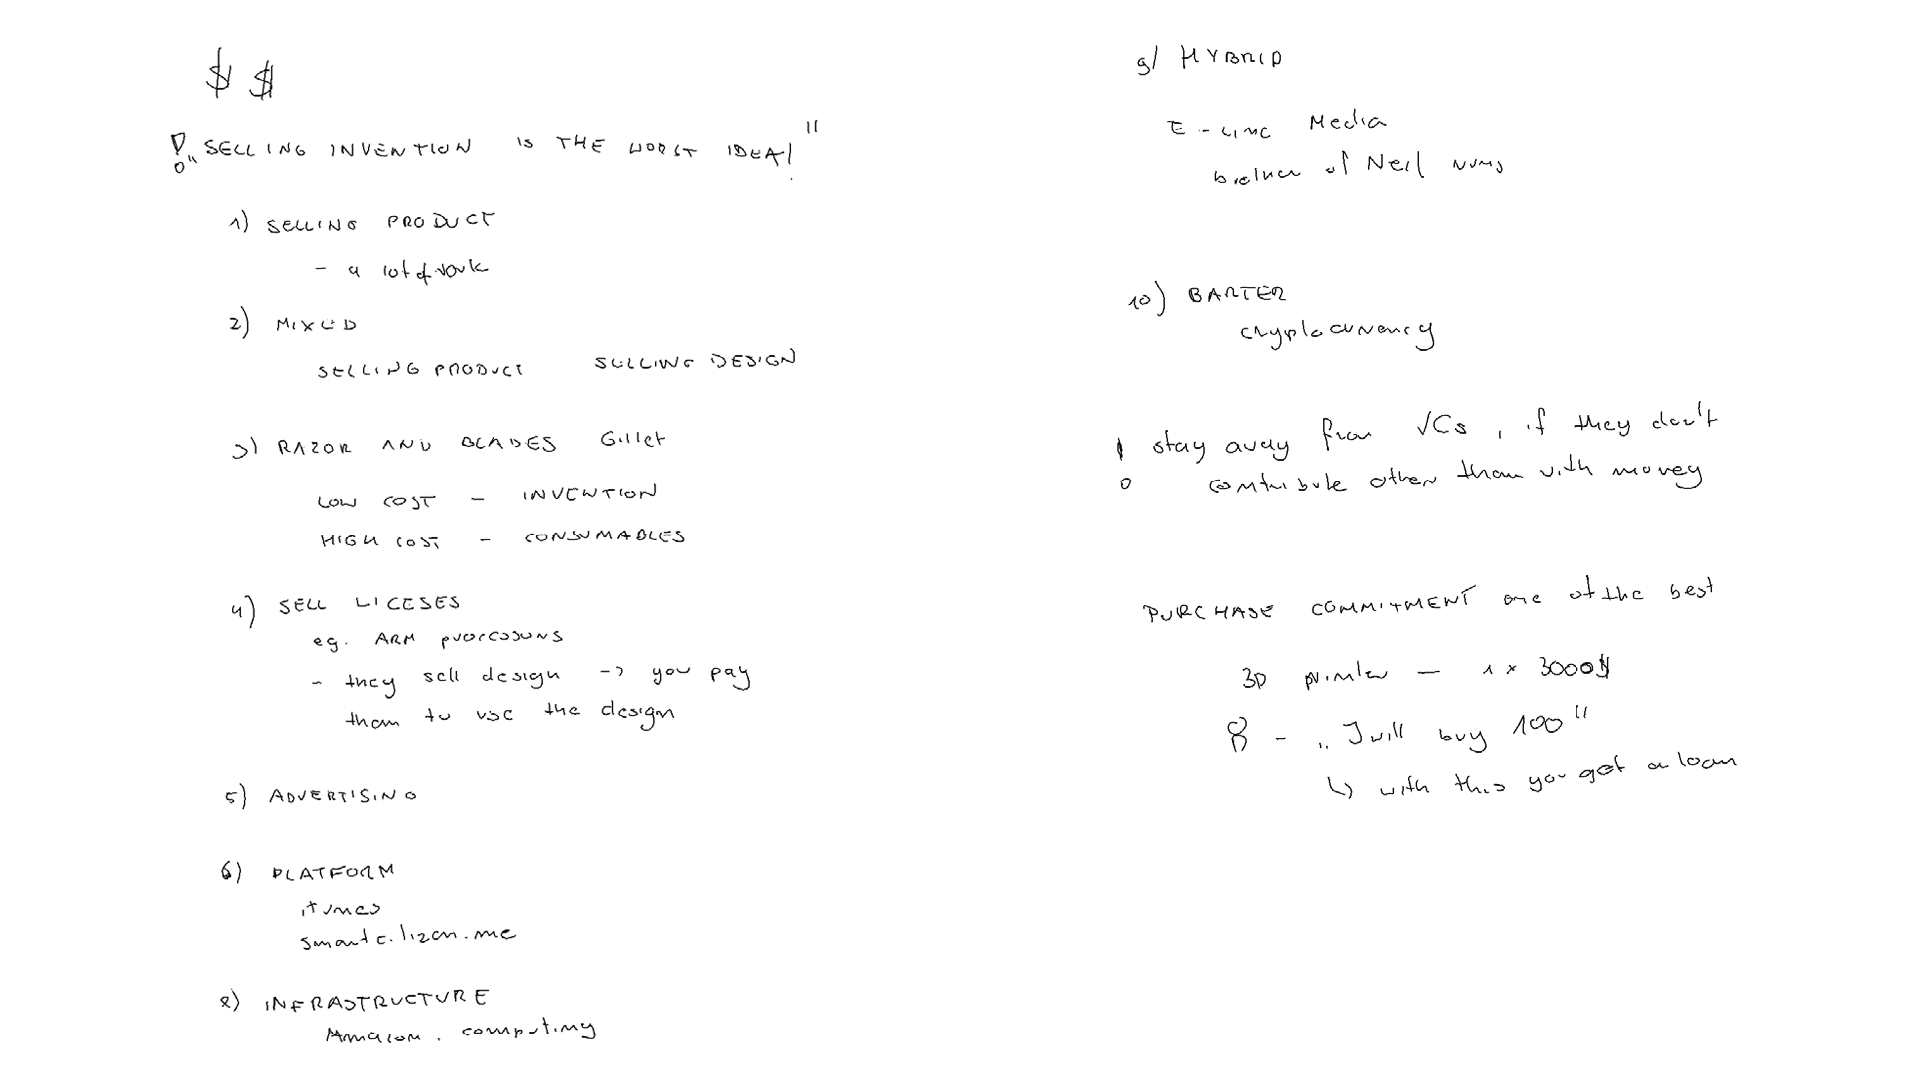 $ $
! „SELLING INVENTION IS THE WORST IDEA!"
1) SELLING PRODUCT
- a lot of work
2) MIXED
SELLING PRODUCT SELLING DESIGN
3) RAZOR AND BLADES Gillet
LOW COST - INVENTION
HIGH COST - CONSUMABLES
4) SELL LICESES
eg. ARM
- they sell design -> you pay
them to use the design
5) ADVERTISING
6) PLATFORM
itunes
smartcitizen.me
8) INFRASTRUCTURE
Amazon. computing
9) HYBRID
E-Line Media
of Neil
10) BARTER
cryptocurrency
! stay away from VCs, if they don't
contribute other than with money
PURCHASE COMMITMENT one of the best
3D printer - 1 x 3000$
- „I will buy 100"
↳ with this you get a loan